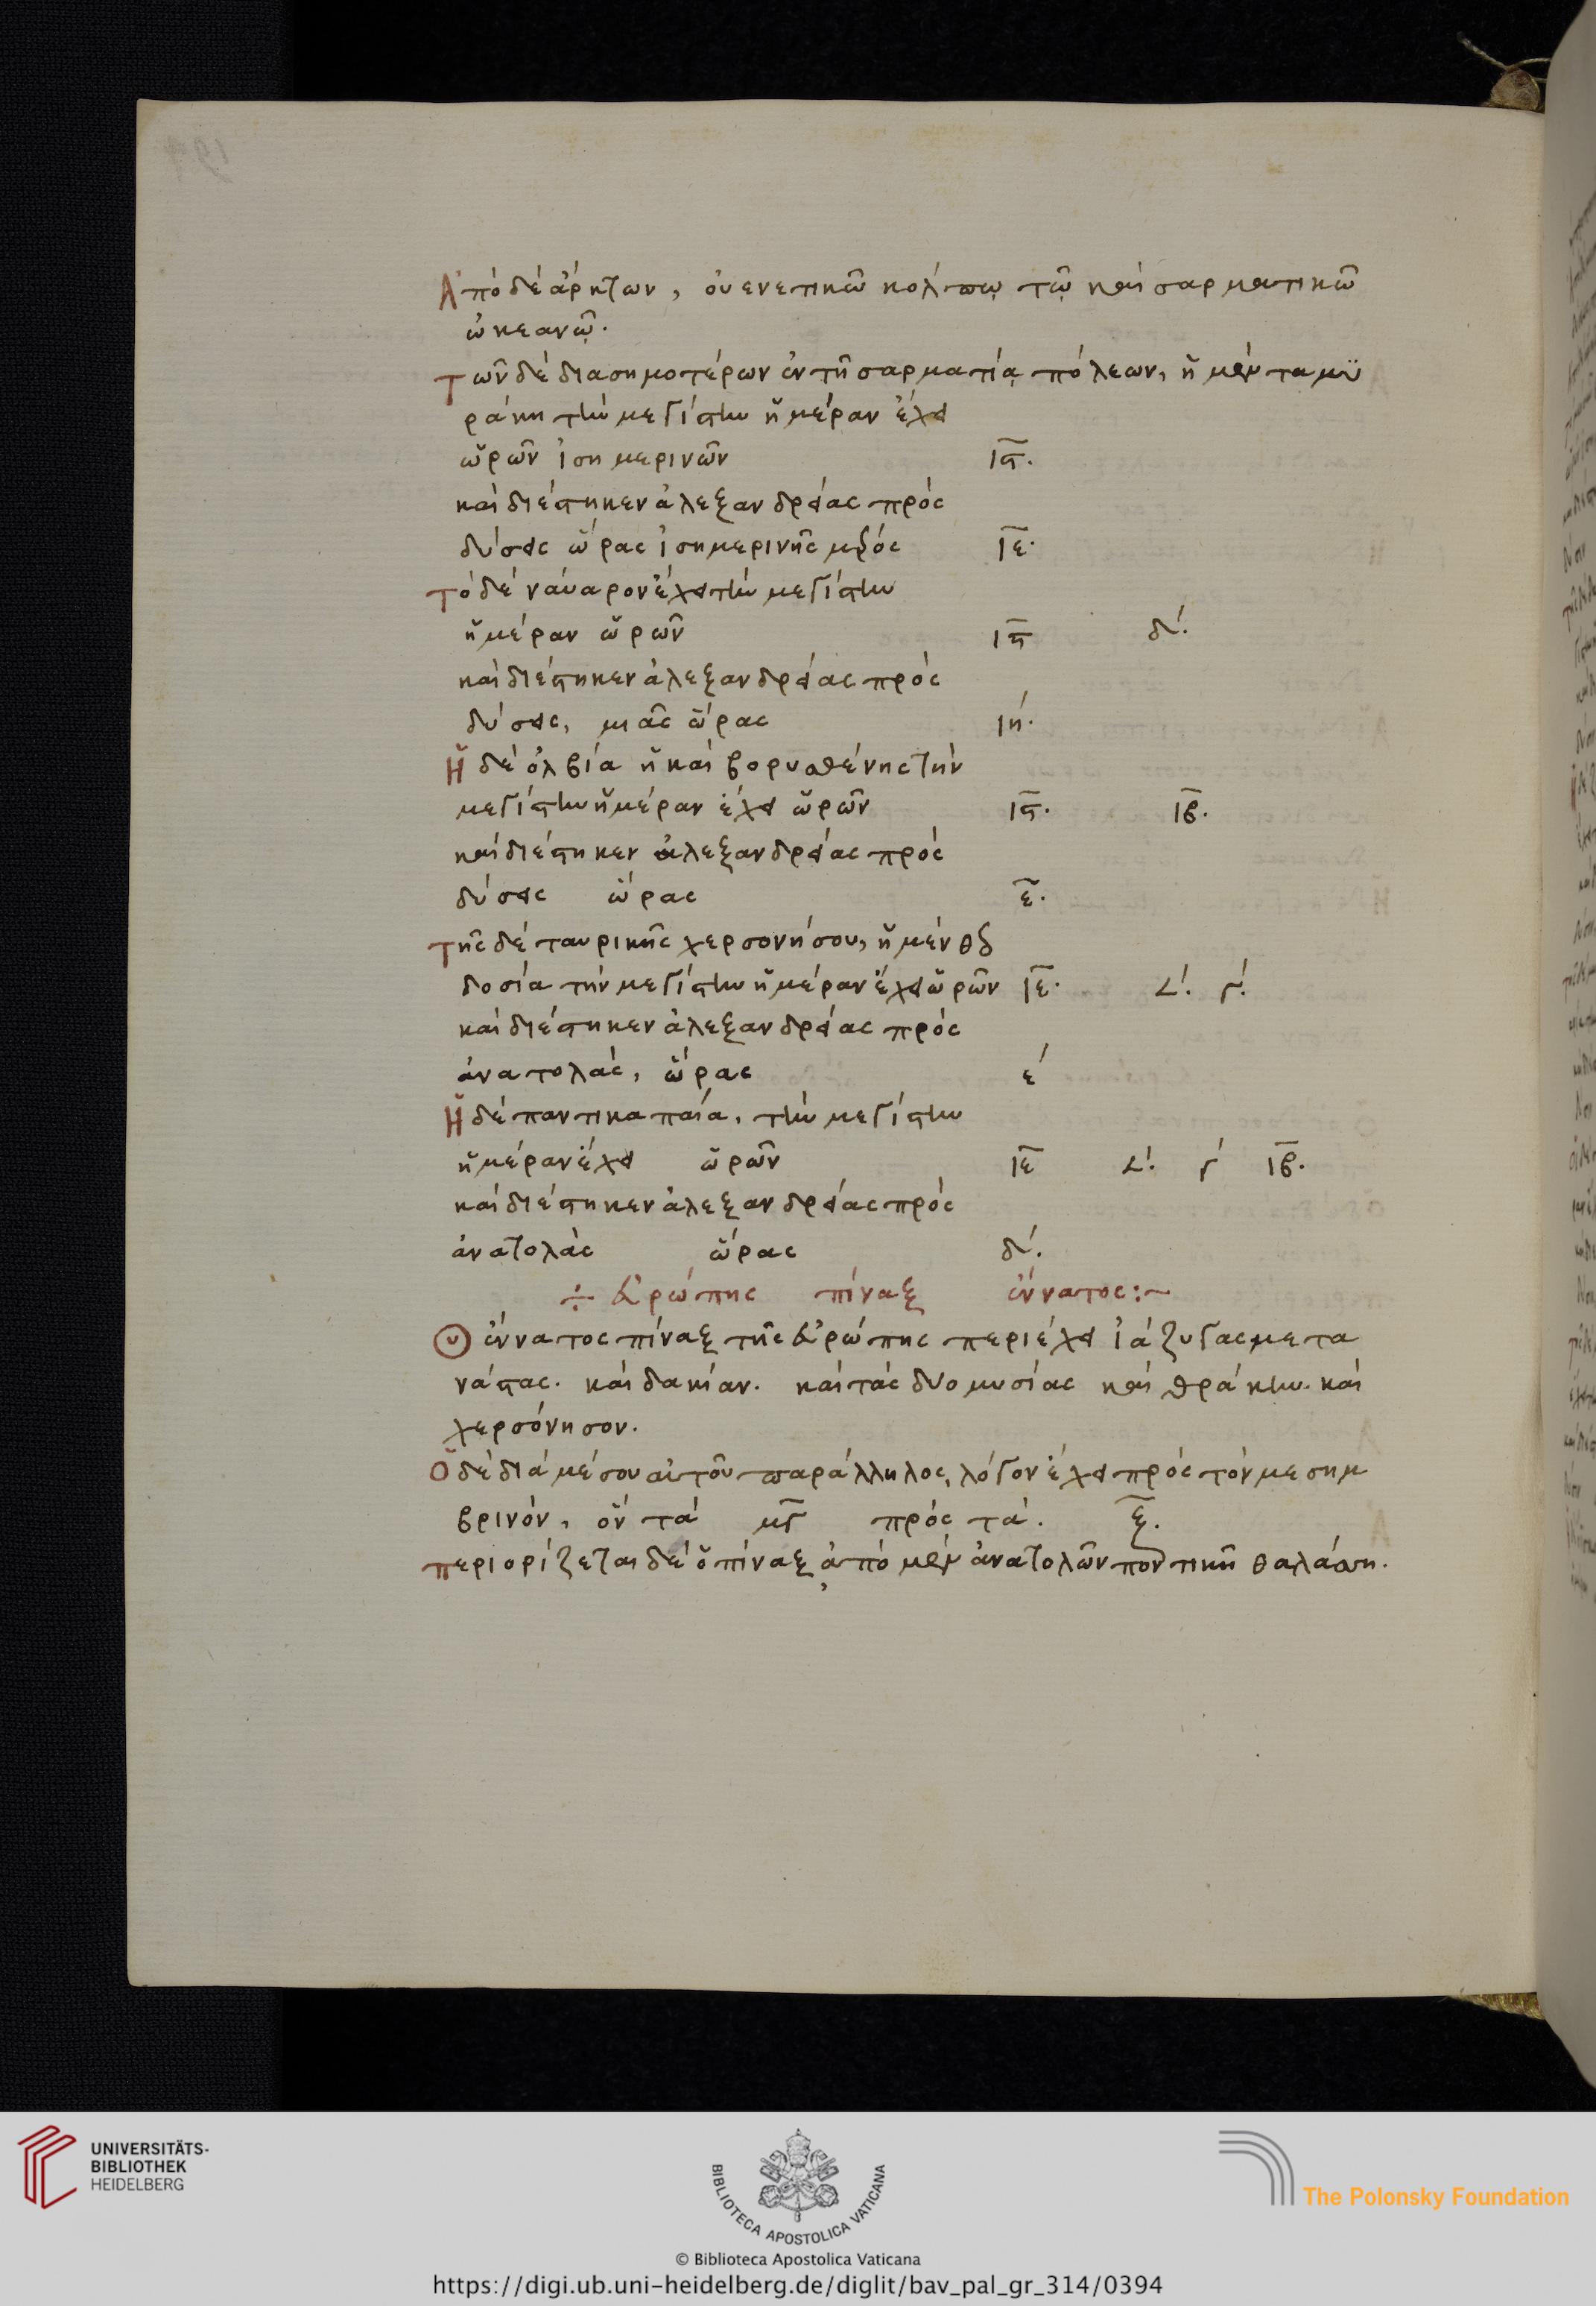 Ἀπὸ δὲ ἄρκτων, οὐενετικῶ κόλπῳ τῷ καὶ σαρματικῶ
ὠκεανῷ.
Τῶν δὲ διασημοτέρων ἐν τῆ σαρματίᾳ πόλεων, ἡ μὲν ταμϋ
ράκη τὴν μεγίστην ἡμέραν ἔχει
ὡρῶν ἰσημερινῶν ιϛ.
καὶ διέστηκεν ἀλεξανδρείας πρὸς
δύσεις ὥρας ἰσημερινῆς μέρος ιε.
Τὸ δὲ νάυαρον ἔχει τὴν μεγίστην
ἡμέραν ὡρῶν ιϛ δ.
καὶ διέστηκεν ἀλεξανδρείας πρὸς
δύσεις, μιᾶς ὥρας ιη.
Ἡ δὲ ὀλβία ἡ καὶ βορυσθένης τὴν
μεγίστην ἡμέραν ἔχει ὡρῶν ιϛ. ιβ.
καὶ διέστηκεν ἀλεξανδρείας πρὸς
δύσεις ὥρας ε.
Τῆς δὲ ταυρικῆς χερσονήσου, ἡ μὲν θεο
δοσία τὴν μεγίστην ἡμέραν ἔχει ὡρῶν ιε. ∠. γ.
καὶ διέστηκεν ἀλεξανδρείας πρὸς
ἀνατολάς, ὥρας ε
Ἡ δὲ παντικαπαία, τὴν μεγίστην
ἡμέραν ἔχει ὡρῶν ιε ∠. γ ιβ.
καὶ διέστηκεν ἀλεξανδρείας πρὸς
ἀνατολὰς ὥρας δ.
÷ Εὐρώπης πίναξ ἔννατος:~
Ὁ ἔννατος πίναξ τῆς εὐρώπης περιέχει ἰάζυγας μετα
νάστας. καὶ δακίαν. καὶ τὰς δυο μυσίας καὶ θράκην. καὶ
χερσόνησον.
Ὁ δὲ διὰ μέσου αὐτοῦ παράλληλος, λόγον ἔχει πρὸς τὸν μεσημ
βρινόν, ὃν τὰ μγ πρὸς τὰ. ξ.
περιορίζεται δὲ ὁ πίναξ ἀπὸ μὲν ἀνατολῶν ποντικῆ θαλάσση.
UNIVERSITÄTS-
BIBLIOTHEK
HEIDELBERG
BIBLIOTECA APOSTOLICA VATICANA
The Polonsky Foundation
© Biblioteca Apostolica Vaticana
https://digi.ub.uni-heidelberg.de/diglit/bav_pal_gr_314/0394